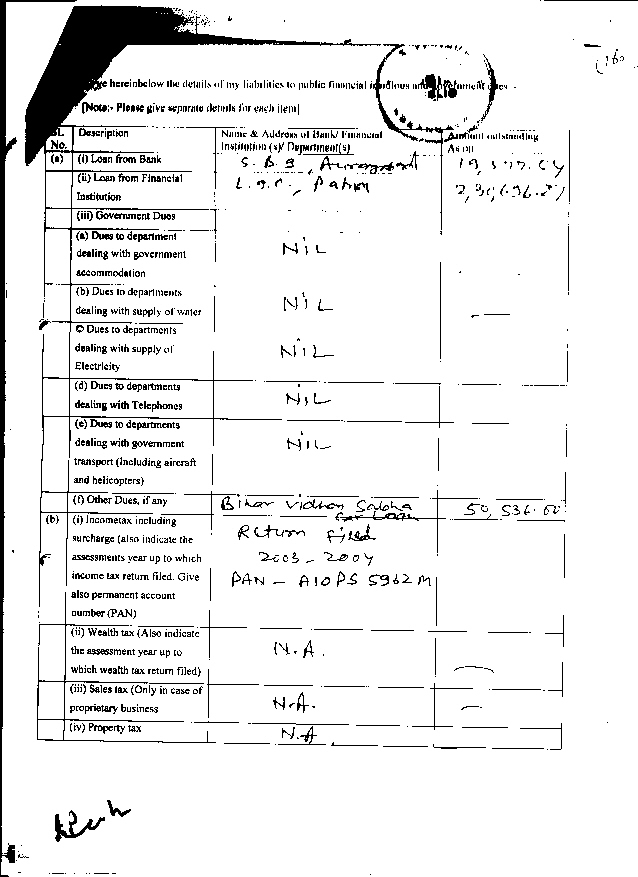 hereinbelow the details of my liabilities to public financial
[Note:- Please give separate details for each item]
SL. No. Description Name & Address of Bank/ Financial Institution (s)/ Department(s) Amount outstanding As on
(a) (i) Loan from Bank S.B.I,
(ii) Loan from Financial Institution L.I.C., Patna
(iii) Government Dues
(a) Dues to department
dealing with government NIL
accommodation
(b) Dues to departments
dealing with supply of water NIL
© Dues to departments
dealing with supply of NIL
Electricity
(d) Dues to departments
dealing with Telephones NIL
(e) Dues to departments
dealing with government NIL
transport (Including aircraft
and helicopters)
(f) Other Dues, if any Bihar Vidhan Sabha 50,536.00
Car Loan
(b) (i) Incometax including Return filed
surcharge (also indicate the
assessments year up to which 2003-2004
income tax return filed. Give PAN - AIOPS 5962 M
also permanent account
number (PAN)
(ii) Wealth tax (Also indicate
the assessment year up to N.A.
which wealth tax return filed)
(iii) Sales tax (Only in case of
proprietary business N.A.
(iv) Property tax N.A